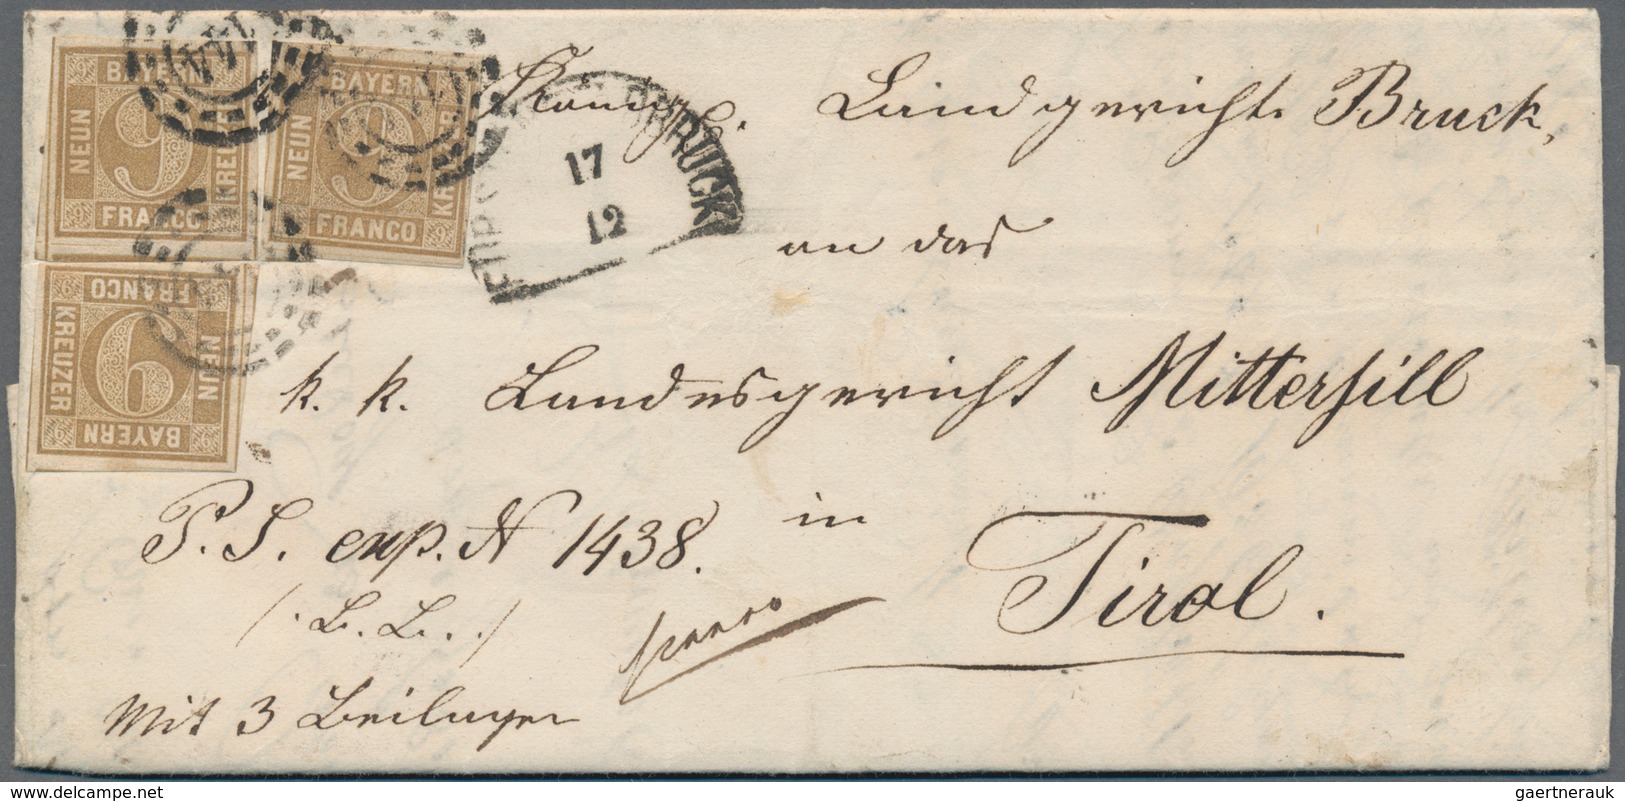 BAYERN
NEUN
KREUZER
FRANCO
9
BAYERN
NEUN
KREUZER
FRANCO
9
FRANCO
KREUZER
NEUN
BAYERN
9
17
12
Königl. Landgericht Bruck,
an das
k. k. Landesgericht Mittersill
P. S. exp. N 1438. in
Tirol.
franco
Mit 3 Beilagen
delcampe.net
gaertnerauk